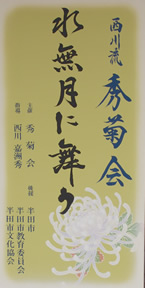 西川流
秀菊会
水無月に舞う
主催 秀菊会
指導 西川嘉洲秀
後援 半田市
半田市教育委員会
半田市文化協会